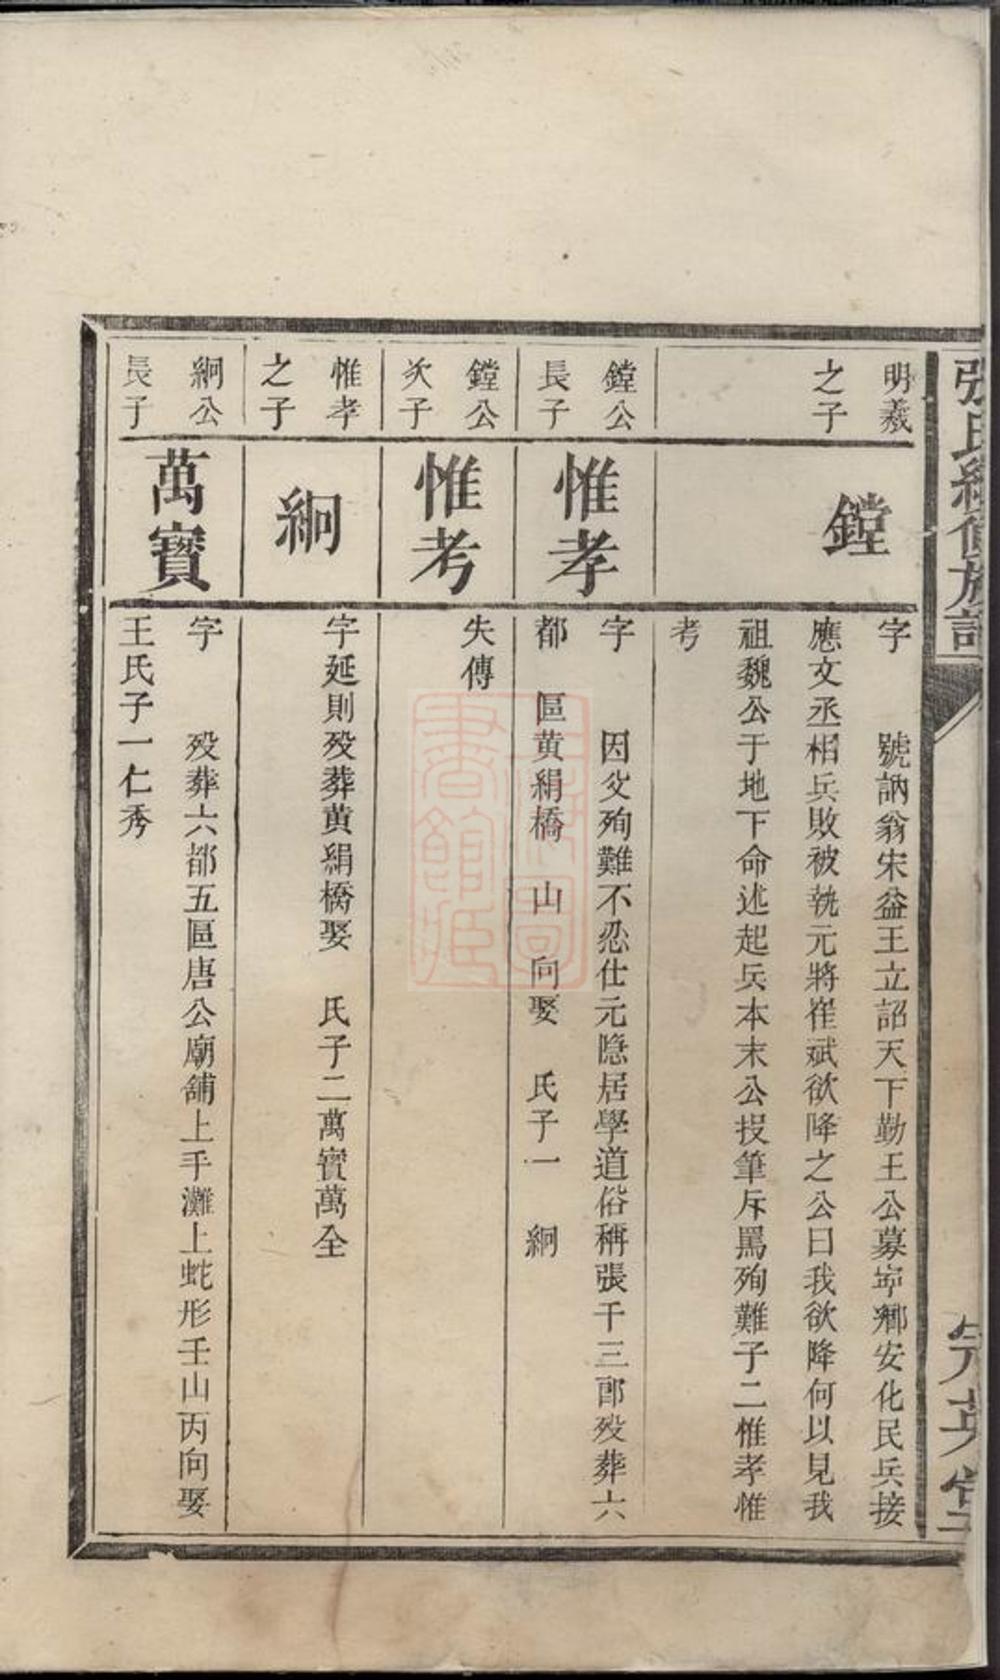 張氏續修族譜
明羲
之子
鏜
字　號訥翁宋益王立詔天下勤王公募寧鄉安化民兵接
應文丞相兵敗被執元將崔斌欲降之公曰我欲降何以見我
祖魏公于地下命述起兵本末公投筆斥罵殉難子二惟孝惟
考
鏜公
長子
惟孝
字　因父殉難不忍仕元隐居學道俗稱張千三郎殁葬六
都　區黄絹橋　山　向娶　氏子一　絅
鏜公
次子
惟考
失傳
惟孝
之子
絅
字延則殁葬黄絹橋娶　氏子二萬寳萬全
絅公
長子
萬寳
字　殁葬六都五區唐公廟舖上手灘上蛇形壬山丙向娶
王氏子一仁秀